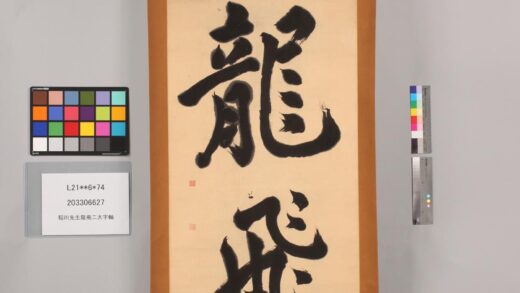 龍
飛
L21**6*74
203306627
拓川先生龍飛二大字軸